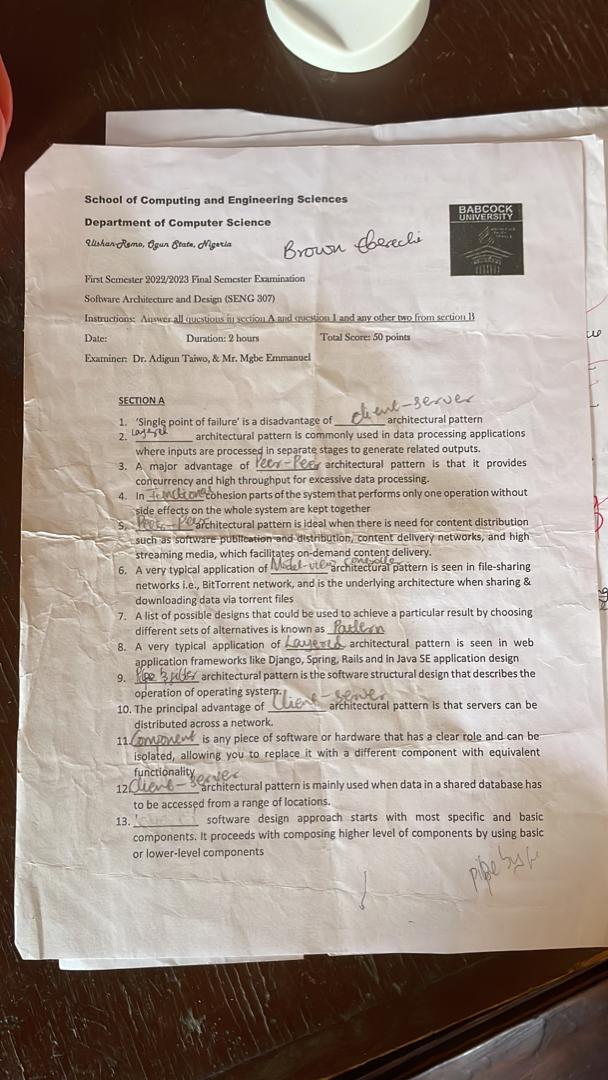 School of Computing and Engineering Sciences
Department of Computer Science
Ilishan-Remo, Ogun State, Nigeria
BABCOCK
UNIVERSITY
Brown
First Semester 2022/2023 Final Semester Examination
Software Architecture and Design (SENG 307)
Instructions: Answer all questions in section A and question 1 and any other two from section B
Date: Duration: 2 hours Total Score: 50 points
Examiner: Dr. Adigun Taiwo, & Mr. Mgbe Emmanuel
SECTION A
1. 'Single point of failure' is a disadvantage of client-server architectural pattern
2. Layered architectural pattern is commonly used in data processing applications
where inputs are processed in separate stages to generate related outputs.
3. A major advantage of Peer-Peer architectural pattern is that it provides
concurrency and high throughput for excessive data processing.
4. In Functional cohesion parts of the system that performs only one operation without
side effects on the whole system are kept together
5. Peer-Peer architectural pattern is ideal when there is need for content distribution
such as software publication and distribution, content delivery networks, and high
streaming media, which facilitates on-demand content delivery.
6. A very typical application of Model-view controller architectural pattern is seen in file-sharing
networks i.e., BitTorrent network, and is the underlying architecture when sharing &
downloading data via torrent files
7. A list of possible designs that could be used to achieve a particular result by choosing
different sets of alternatives is known as Pattern
8. A very typical application of Layered architectural pattern is seen in web
application frameworks like Django, Spring, Rails and in Java SE application design
9. Pipe & filter architectural pattern is the software structural design that describes the
operation of operating system.
10. The principal advantage of Client-server architectural pattern is that servers can be
distributed across a network.
11. Component is any piece of software or hardware that has a clear role and can be
isolated, allowing you to replace it with a different component with equivalent
functionality
12. Client-server architectural pattern is mainly used when data in a shared database has
to be accessed from a range of locations.
13. software design approach starts with most specific and basic
components. It proceeds with composing higher level of components by using basic
or lower-level components
pipe